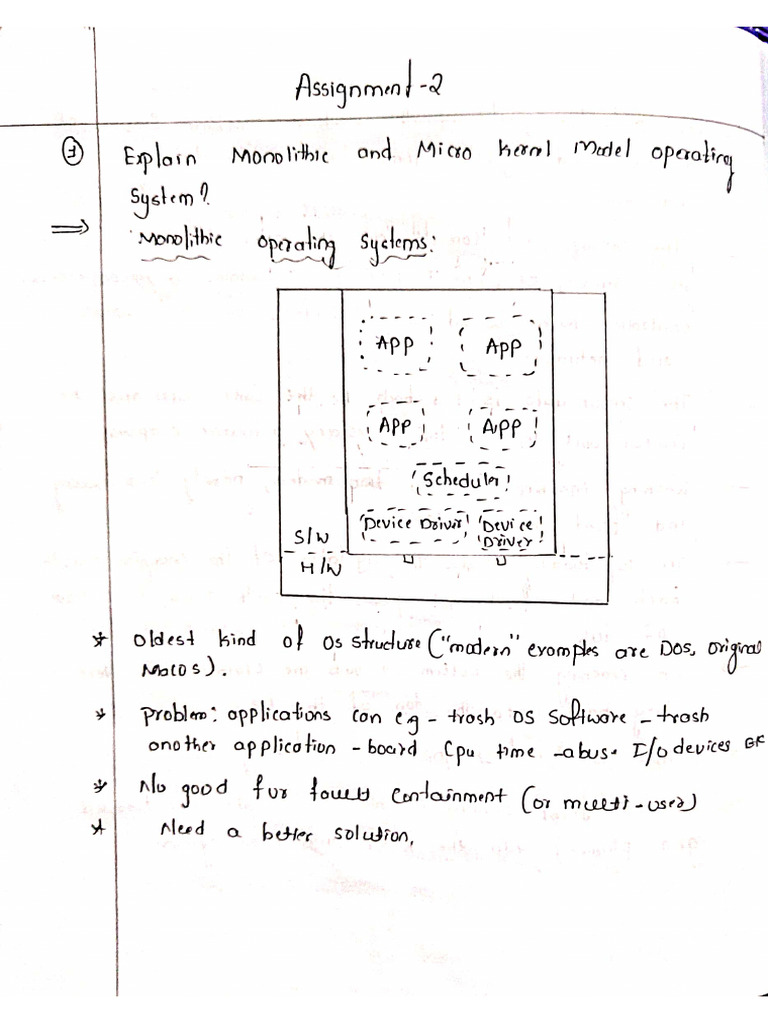 Assignment-2
① Explain Monolithic and Micro kernel Model operating
System?
⇒ Monolithic operating Systems:
APP APP
APP APP
Scheduler
Device Driver Device
Driver
S/W
H/W
* Oldest kind of OS structure ("modern" examples are DOS, original
MacOS).
* Problem: applications can eg - trash OS software - trash
another application - board Cpu time - abuse I/O devices
* No good for containment (or multi-user)
* Need a better solution.